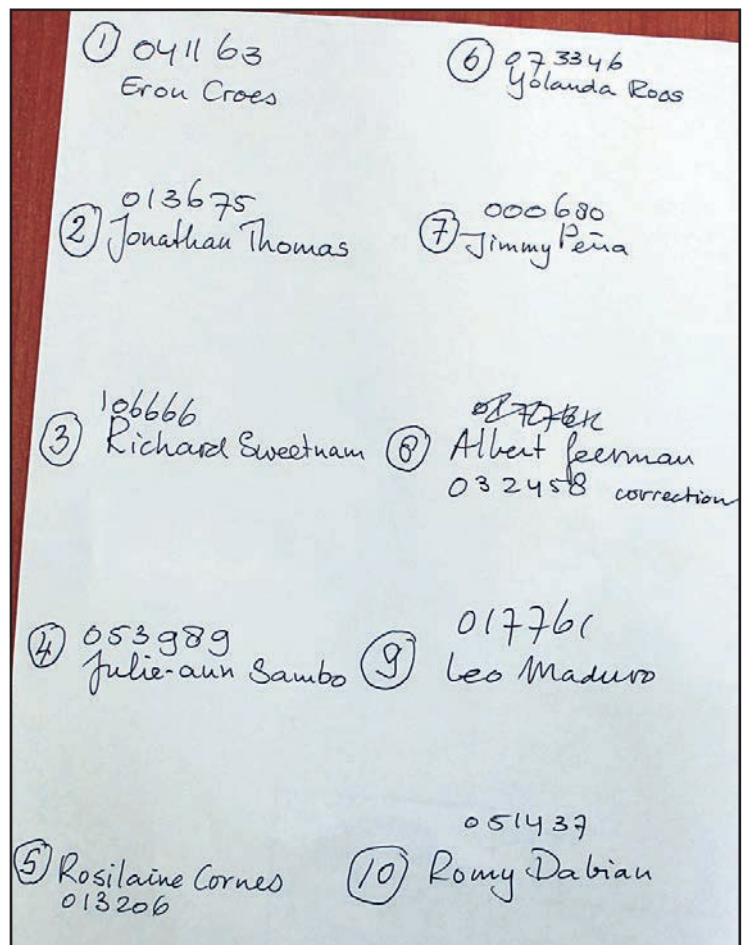 ① 041163
Eron Croes
② 013675
Jonathan Thomas
③ 106666
Richard Sweetnam
④ 053989
Julie-ann Sambo
⑤ Rosilaine Cornes
013206
⑥ 073346
Yolanda Roos
⑦ 000680
Jimmy Peña
⑧
Albert Geerman
032458 correction
⑨ 017761
Leo Maduro
051437
⑩ Romy Dabian